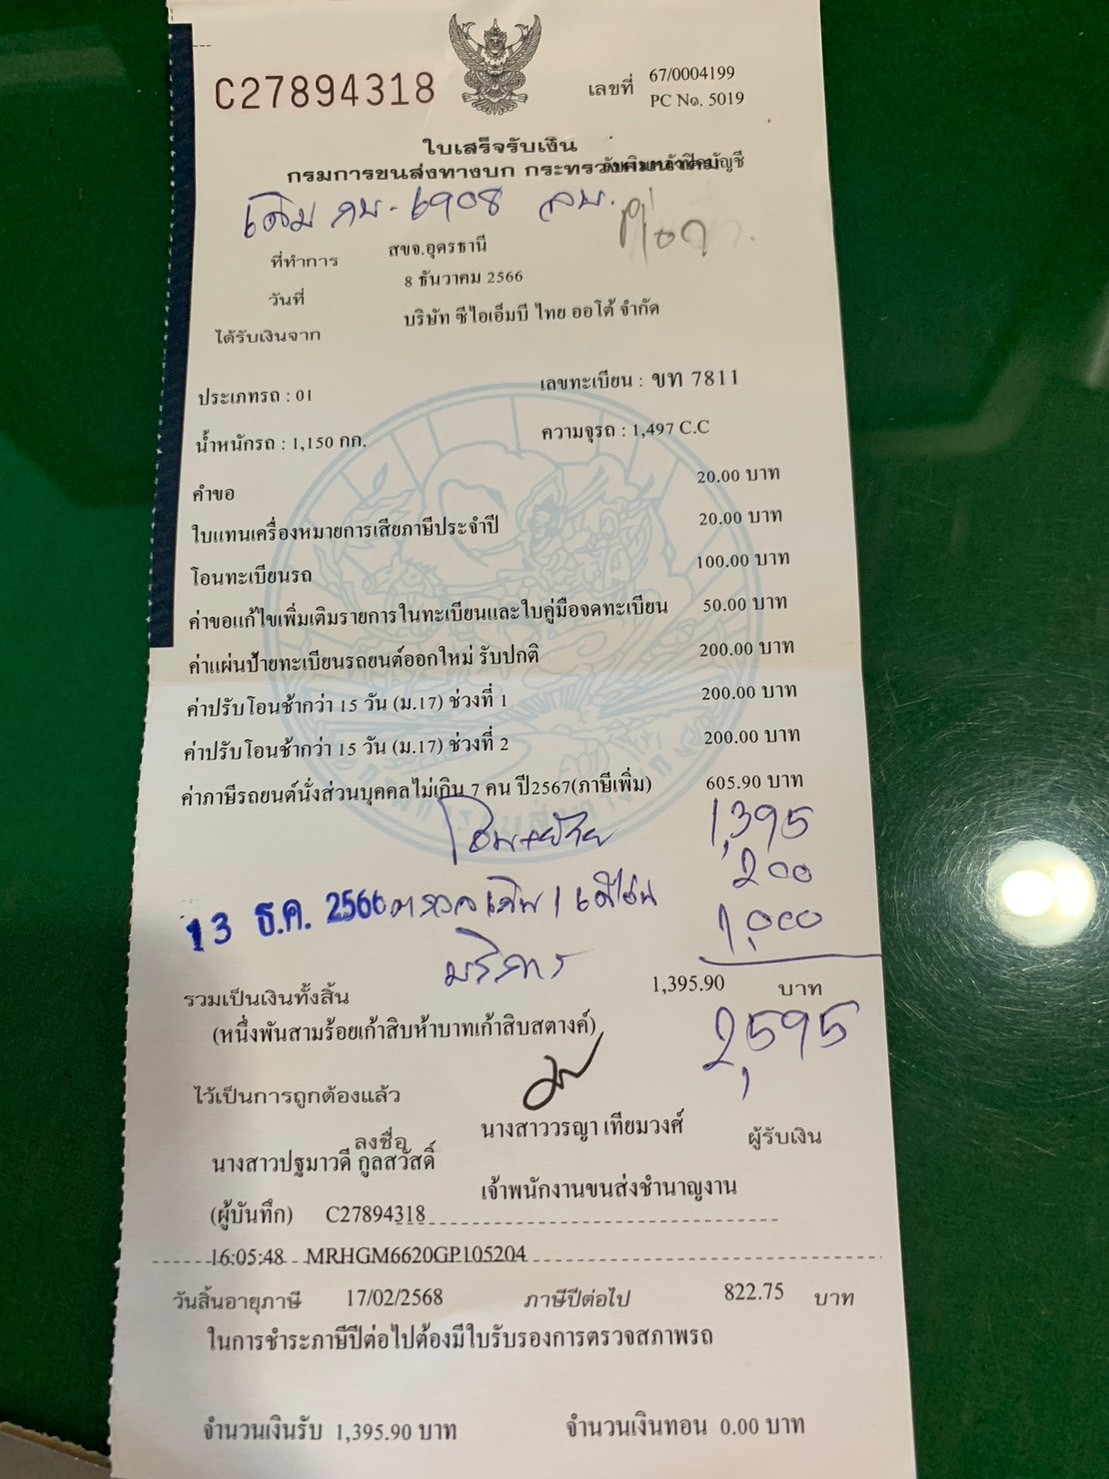 C27894318
เลขที่ 67/0004199
PC No. 5019
ใบเสร็จรับเงิน
กรมการขนส่งทางบก กระทรวงคมนาคม
เดิม กบ-6908 ลบ.
ที่ทำการ สขจ.อุดรธานี
วันที่ 8 ธันวาคม 2566
ได้รับเงินจาก บริษัท ซีไอเอ็มบี ไทย ออโต้ จำกัด
ประเภทรถ : 01 เลขทะเบียน : ขท 7811
น้ำหนักรถ : 1,150 กก. ความจุรถ : 1,497 C.C
คำขอ 20.00 บาท
ใบแทนเครื่องหมายการเสียภาษีประจำปี 20.00 บาท
โอนทะเบียนรถ 100.00 บาท
ค่าขอแก้ไขเพิ่มเติมรายการในทะเบียนและใบคู่มือจดทะเบียน 50.00 บาท
ค่าแผ่นป้ายทะเบียนรถยนต์ออกใหม่ รับปกติ 200.00 บาท
ค่าปรับโอนช้ากว่า 15 วัน (ม.17) ช่วงที่ 1 200.00 บาท
ค่าปรับโอนช้ากว่า 15 วัน (ม.17) ช่วงที่ 2 200.00 บาท
ค่าภาษีรถยนต์นั่งส่วนบุคคลไม่เกิน 7 คน ปี2567(ภาษีเพิ่ม) 605.90 บาท
โอน+ย้าย 1,395
200
13 ธ.ค. 2566
บริการ 1,000
รวมเป็นเงินทั้งสิ้น 1,395.90 บาท
(หนึ่งพันสามร้อยเก้าสิบห้าบาทเก้าสิบสตางค์) 2,595
ไว้เป็นการถูกต้องแล้ว
ลงชื่อ นางสาววรญา เทียมวงศ์ ผู้รับเงิน
นางสาวปฐมาวดี กูลสวัสดิ์
เจ้าพนักงานขนส่งชำนาญงาน
(ผู้บันทึก) C27894318
16:05:48 MRHGM6620GP105204
วันสิ้นอายุภาษี 17/02/2568 ภาษีปีต่อไป 822.75 บาท
ในการชำระภาษีปีต่อไปต้องมีใบรับรองการตรวจสภาพรถ
จำนวนเงินรับ 1,395.90 บาท จำนวนเงินทอน 0.00 บาท